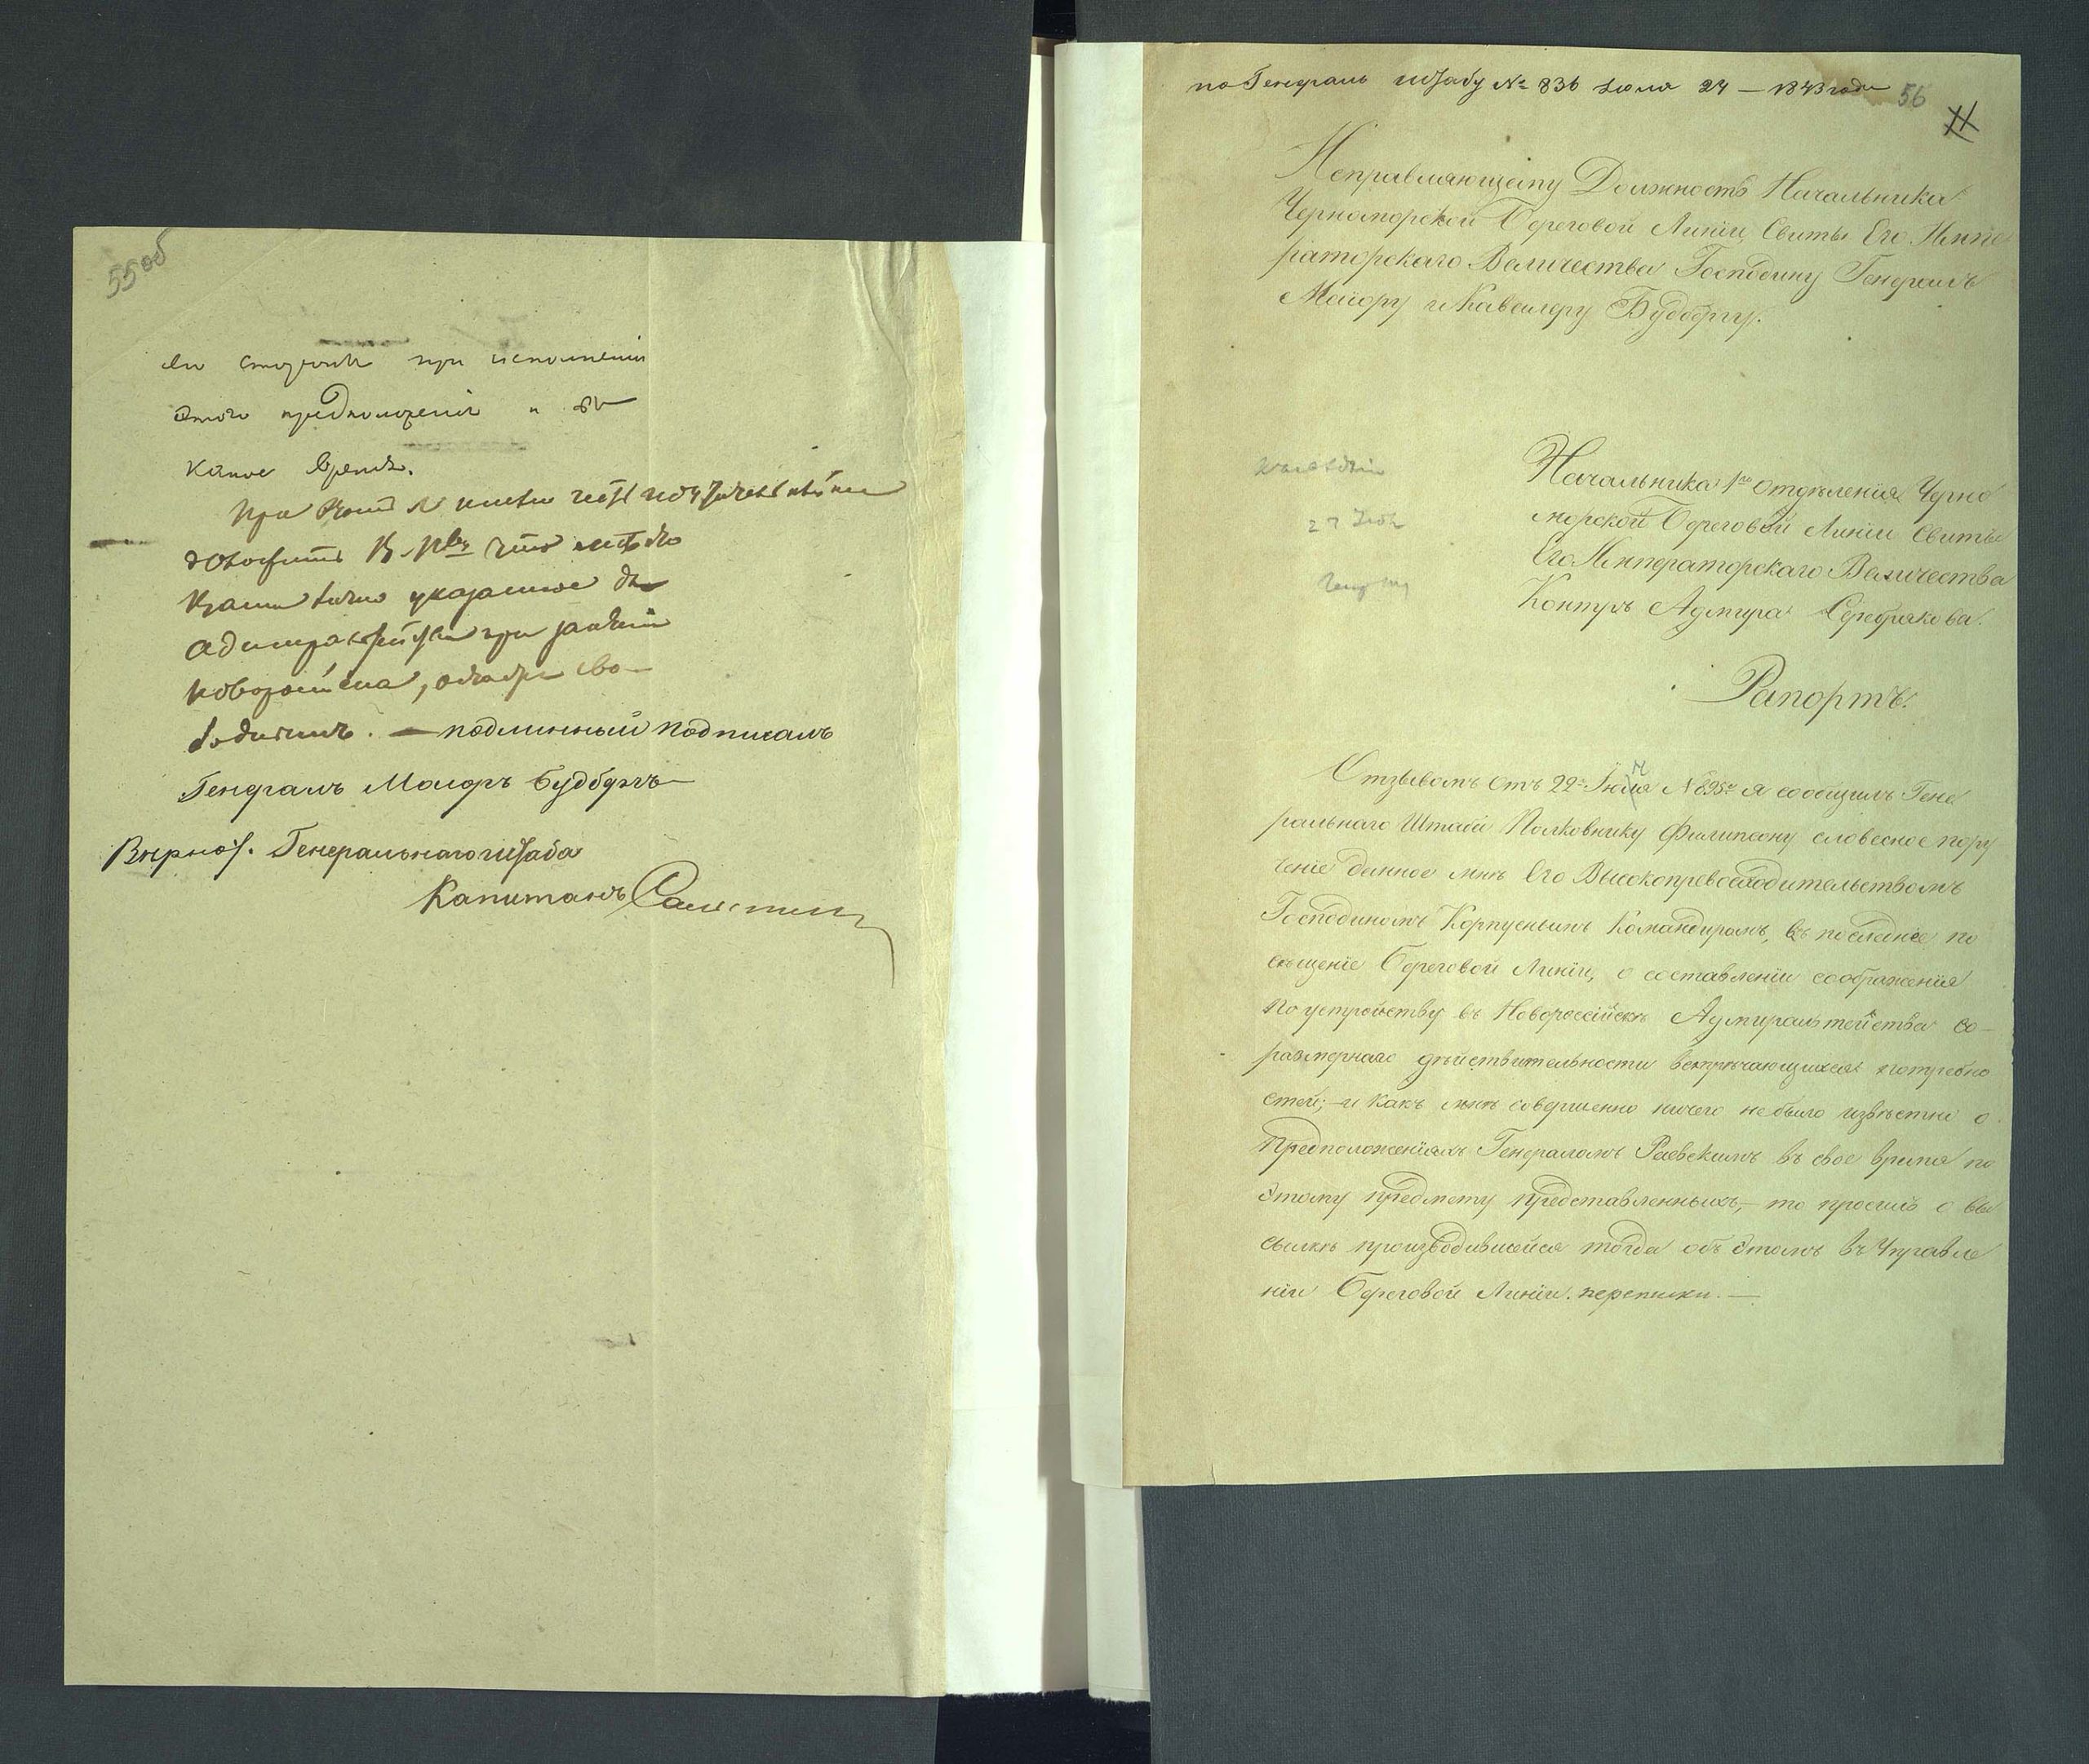 55 об
при исполненіи
этого предположенія и въ
какое время.
При этомъ имѣю честь
доложить В. Пву что мѣсто
указанное для
адмиралтейства при занятіи
Новороссійска,
подлинный подписалъ
Генералъ Маіоръ Будбергъ
Вѣрно: Генеральнаго штаба
Капитанъ
по Генералъ штабу № 836 Іюля 24 – 1843 года 56
Исправляющему Должность Начальника
Черноморской Береговой Линіи, Свиты Его Импе
раторскаго Величества Господину Генералъ
Маіору и Кавалеру Будбергу.
Начальника 1го отдѣленія Черно
морской Береговой Линіи Свиты
Его Императорскаго Величества
Контръ Адмирала Серебрякова.
Рапортъ.
27 Іюля
Отзывомъ отъ 22 Іюня № я сообщилъ Гене
ральнаго Штаба Полковнику Филипсону словесное пору
ченіе данное мнѣ Его Высокопревосходительствомъ
Господиномъ Корпуснымъ Командиромъ, въ последнее по
сѣщеніе Береговой Линіи, о составленіи соображенія
по устройству въ Новороссійскѣ Адмиралтейства со-
размѣрнаго дѣйствительности встрѣчающихся потребно
стей; и какъ мнѣ совершенно ничего не было извѣстно о
предположеніяхъ Генераломъ Раевскимъ въ свое время по
этому предмету представленныхъ, – то просилъ о вы
сылкѣ производившейся тогда объ этомъ въ Управле
ніи Береговой Линіи переписки. –